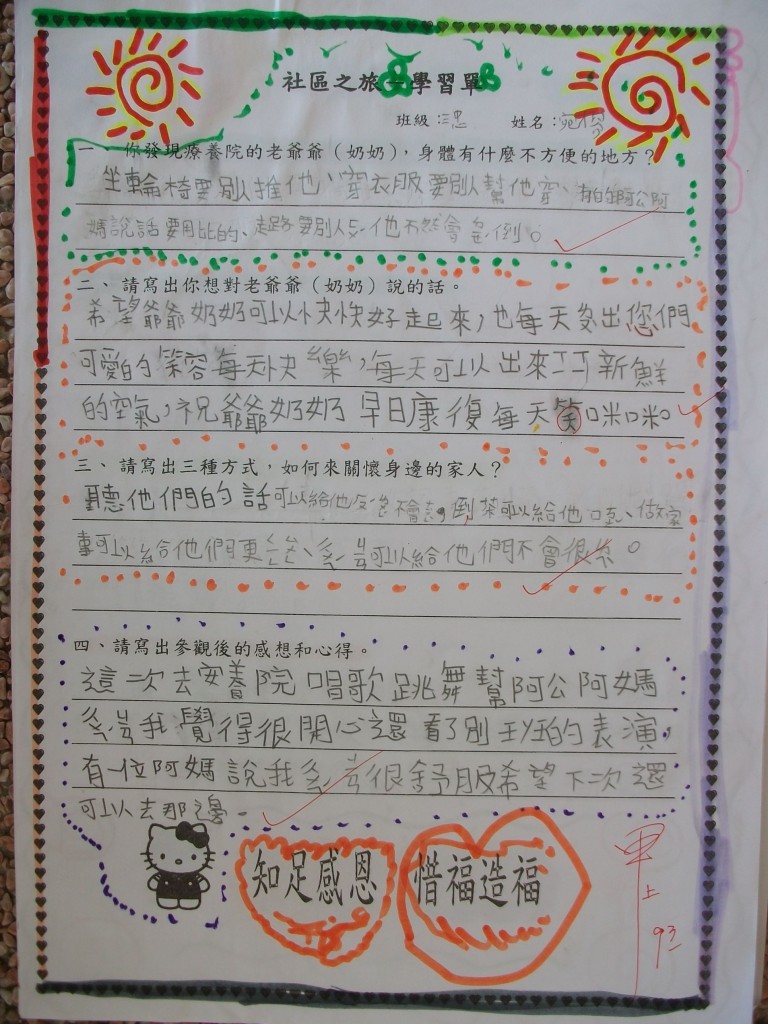 社區之旅—學習單
班級：三忠 姓名：宛
一、你發現療養院的老爺爺（奶奶），身體有什麼不方便的地方？
坐輪椅要別人推他、穿衣服要別人幫他穿、
說話要用比的、走路要別人 他不然會 倒。
二、請寫出你想對老爺爺（奶奶）說的話。
希望爺爺奶奶可以快快好走起來，也每天 出您們
可愛的笑容每天快樂，每天可以出來 新鮮
的空氣，祝爺爺奶奶早日康復每天笑咪咪。
三、請寫出三種方式，如何來關懷身邊的家人？
聽他們的話可以給他 不會 倒茶可以給他 、做家
事可以給他們 、 可以給他們不會很 。
四、請寫出參觀後的感想和心得。
這次去安養院唱歌跳舞幫阿公阿媽
我覺得很開心還看了別班的表演，
有一位阿媽說我 很舒服希望下次還
可以去那邊。
知足感恩 惜福造福
甲上
93